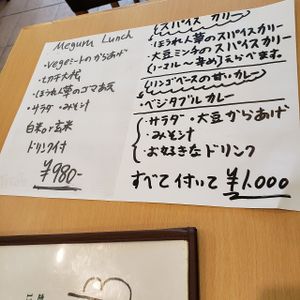 Megumi Lunch
・Vegeミートのからあげ
・ほうれん草のゴマあえ
・サラダ・みそ汁
白米or玄米
ドリンク付
¥980-
スパイス カリー
・ほうれん草のスパイスカリー
・大豆ミンチのスパイスカリー
リンゴベースの甘いカレー
・ベジタブルカレー
・サラダ・大豆からあげ
・みそ汁
・お好きなドリンク
すべて付いて ¥1,000